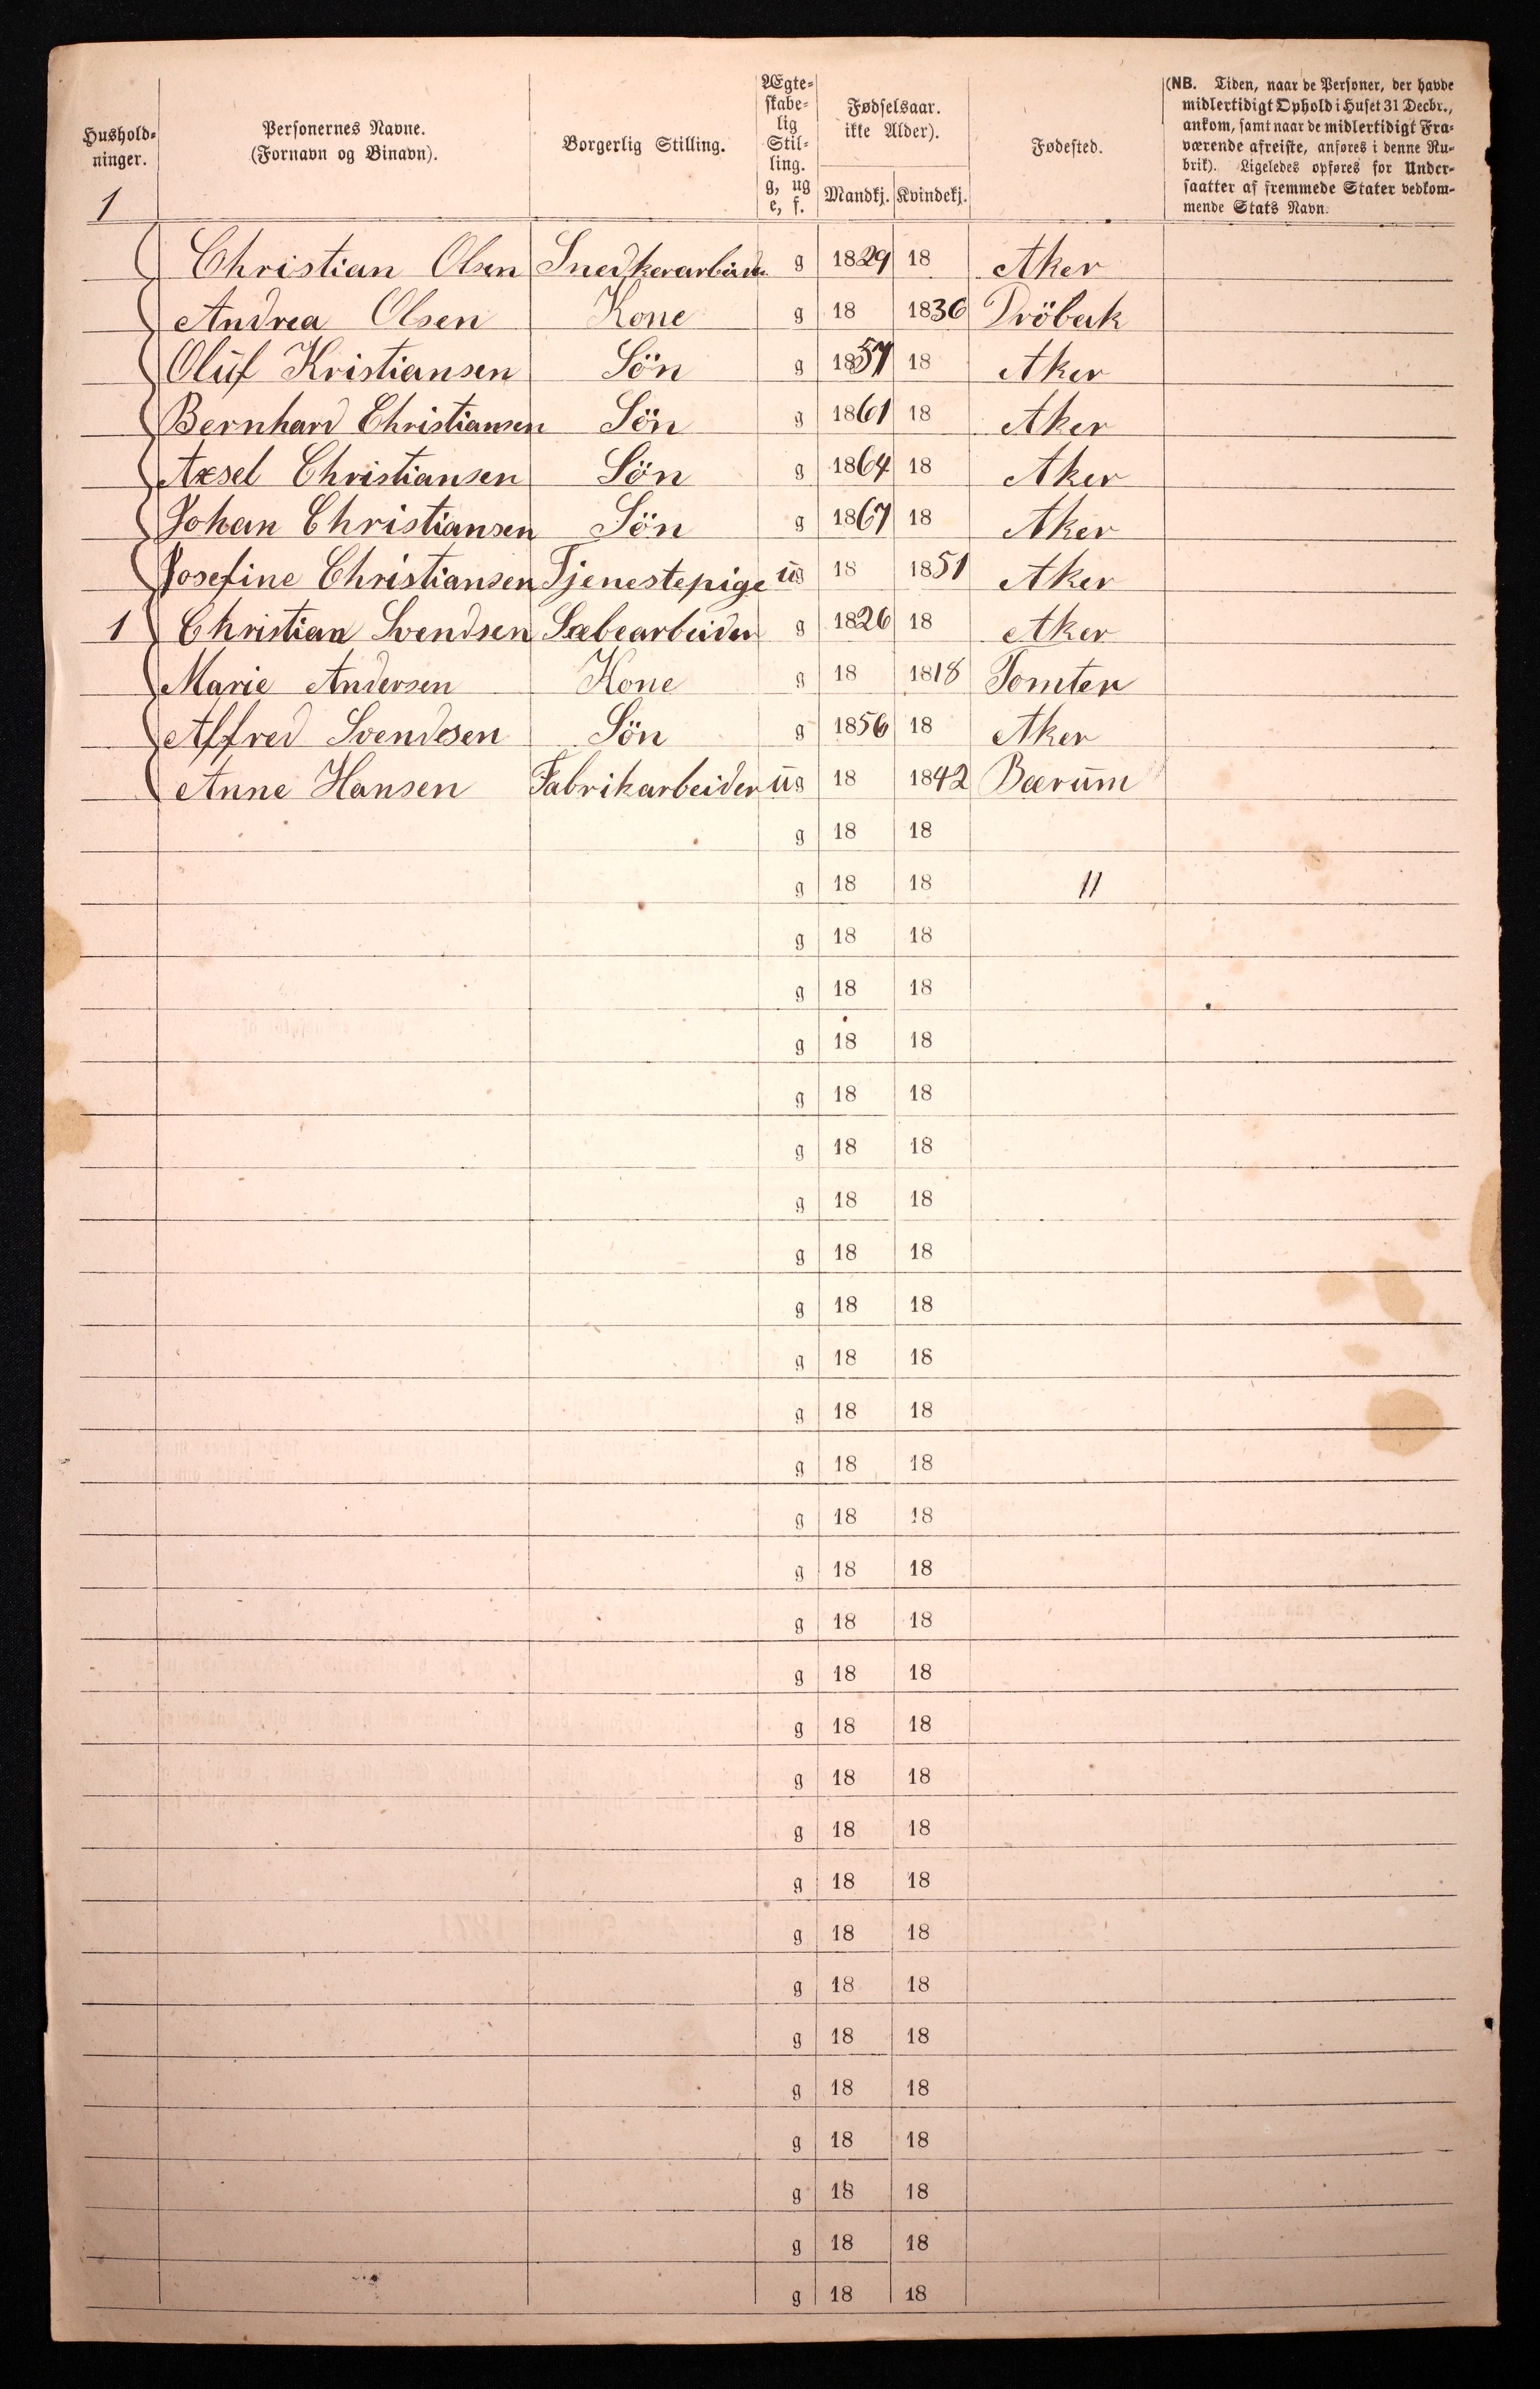 Hushold-
ninger.
Personernes Navne.
(Fornavn og Binavn).
Borgerlig Stilling.
Ægte-
skabe-
lig
Stil-
ling.
g, ug
e, f.
Fødselsaar.
ikke Alder).
Mandkj. Kvindekj.
Fødested.
(NB. Tiden, naar de Personer, der havde
midlertidigt Ophold i Huset 31 Decbr.,
ankom, samt naar de midlertidigt Fra-
værende afreiste, anføres i denne Ru-
brik). Ligeledes opføres for Under-
saatter af fremmede Stater vedkom-
mende Stats Navn.
1
Christian Olsen Snedkerarbeider g 1829 18 Aker
Andrea Olsen Kone g 18 1836 Dröbak
Oluf Kristiansen Sön g 1857 18 Aker
Bernhard Christiansen Sön g 1861 18 Aker
Axsel Christiansen Sön g 1864 18 Aker
Johan Christiansen Sön g 1867 18 Aker
Josefine Christiansen Tjenestepige ug 18 1851 Aker
1 Christian Svendsen Sæbearbeider g 1826 18 Aker
Marie Andersen Kone g 18 1818 Tomter
Alfred Svendsen Sön g 1856 18 Aker
Anne Hansen Fabrikarbeider ug 18 1842 Bærum
g 18 18
g 18 18 11
g 18 18
g 18 18
g 18 18
g 18 18
g 18 18
g 18 18
g 18 18
g 18 18
g 18 18
g 18 18
g 18 18
g 18 18
g 18 18
g 18 18
g 18 18
g 18 18
g 18 18
g 18 18
g 18 18
g 18 18
g 18 18
g 18 18
g 18 18
g 18 18
g 18 18
g 18 18
g 18 18